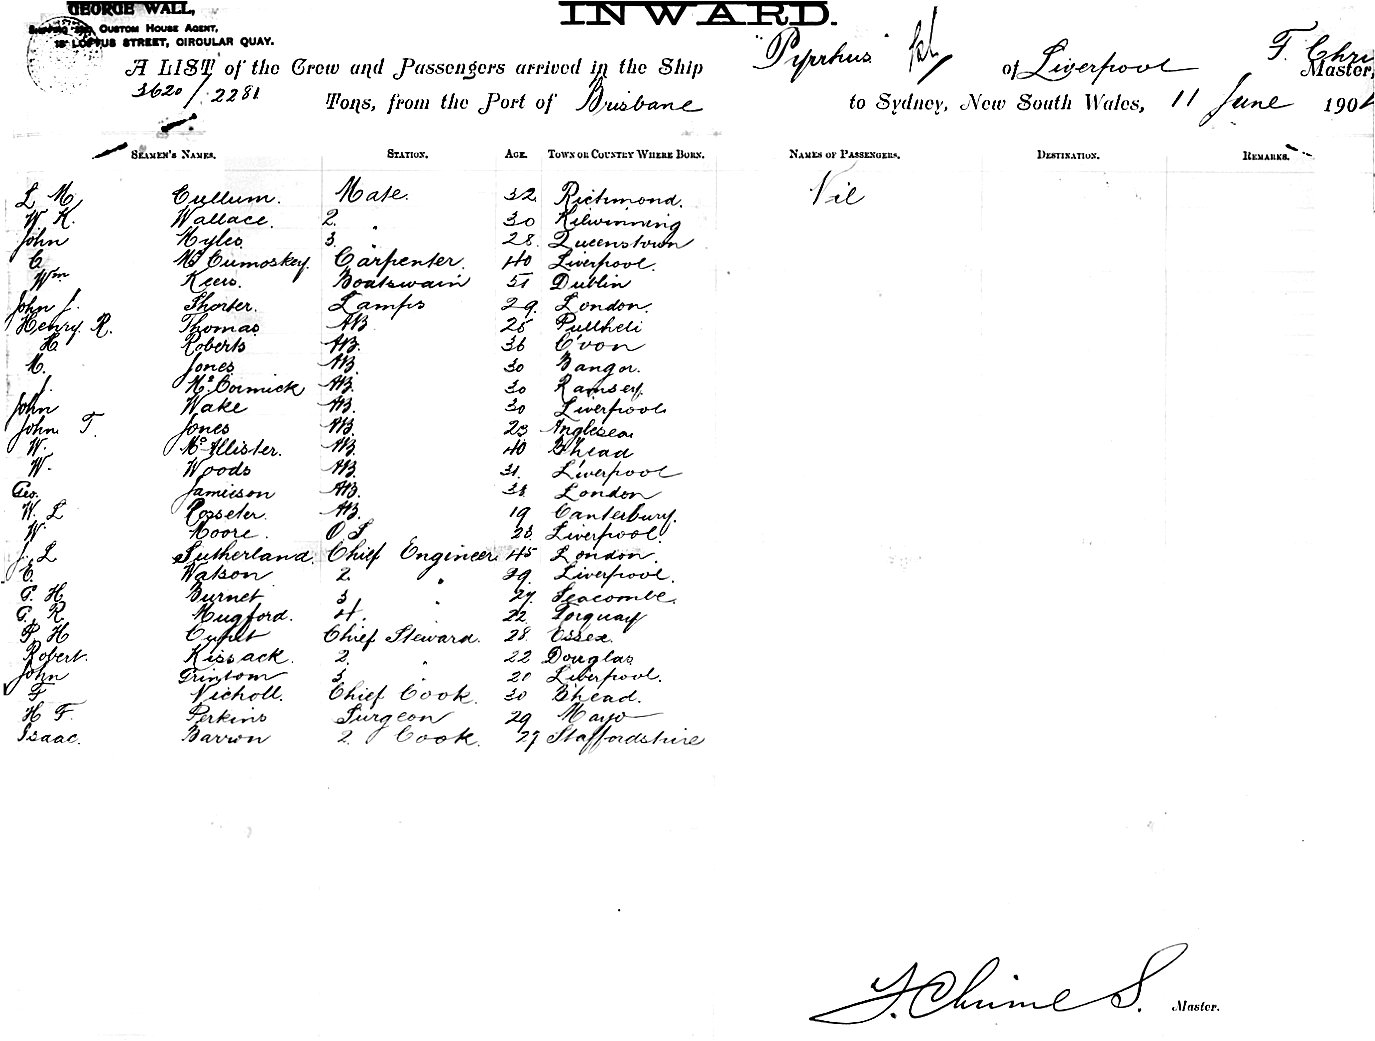 GEORGE WALL,
Custom House Agent,
LOFTUS STREET, CIRCULAR QUAY.
INWARD.
A LIST of the Crew and Passengers arrived in the Ship "Pyrrhus" of Liverpool F. Master,
3620/2281 Tons, from the Port of Brisbane to Sydney, New South Wales, 11 June 190
Seamen's Names. Station. Age. Town or Country Where Born. Names of Passengers. Destination. Remarks.
L M Cullum. Mate. 32 Richmond. Nil
W K. Wallace. 2. " 30 Kilwinning
John Myles 3. 28. Queenstown
C. McCumoskey. Carpenter. 40 Liverpool.
Wm Keers. Boatswain 51 Dublin
John J. Shorter. Lamps 29. London.
Henry R. Thomas AB. 25 Pullheli
H Roberts AB. 36 C'von
M. Jones AB. 30 Bangor.
J. McCormick AB. 30 Ramsey.
John Wake AB. 30 Liverpool
John T. Jones AB. 23 Anglesea
W. McAllister. AB. 40 B'head
W. Woods AB. 31. Liverpool
Geo. Jamieson AB. London
W. L Rosseter. AB. 19 Canterbury.
W. Moore. O S Liverpool.
J. L Sutherland. Chief Engineer 45 London.
E. Watson 2. " 29. Liverpool.
Burnet 3. " 27. Seacombe.
Mugford. 4. " 22 Torquay
P. H Chief Steward. 28. Essex.
Robert. Kissack. 2. " 22 Douglas
John 3. " 21 Liverpool.
F Nicholl. Chief Cook. 30 B'head.
H F. Perkins Surgeon 29 Mayo
Isaac. Barron 2. Cook. 27 Staffordshire
Master.